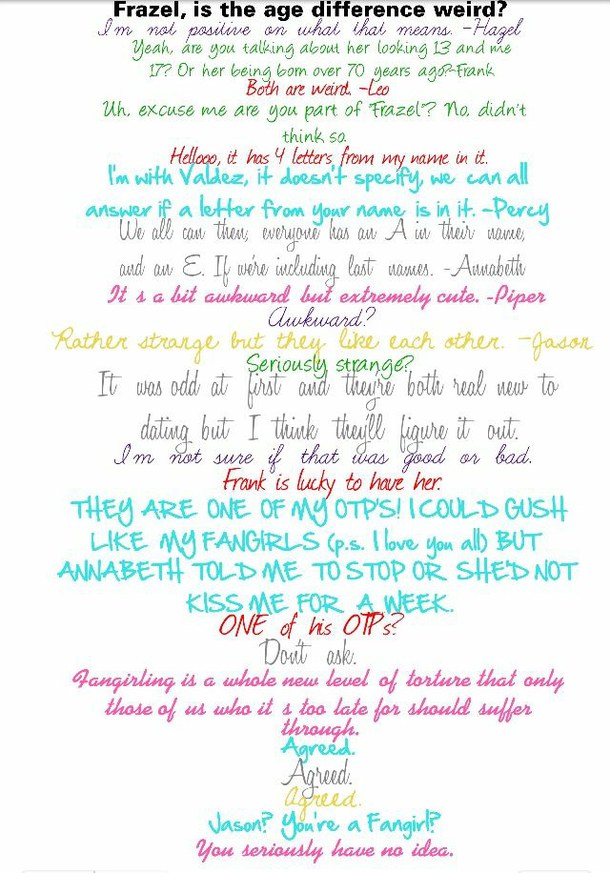 Frazel, is the age difference weird?
I'm not positive on what that means. -Hazel
Yeah, are you talking about her looking 13 and me
17? Or her being born over 70 years ago?-Frank
Both are weird. -Leo
Uh, excuse me are you part of "Frazel"? No, didn't
think so.
Hellooo, it has 4 letters from my name in it.
I'm with Valdez, it doesn't specify, we can all
answer if a letter from your name is in it. -Percy
We all can then, everyone has an A in their name,
and an E. If we're including last names. -Annabeth
It s a bit awkward but extremely cute. -Piper
Awkward?
Rather strange but they like each other. -Jason
Seriously strange?
It was odd at first and they're both real new to
dating but I think they'll figure it out.
I'm not sure if that was good or bad.
Frank is lucky to have her.
THEY ARE ONE OF MY OTP'S! I COULD GUSH
LIKE MY FANGIRLS (p.s. I love you all) BUT
ANNABETH TOLD ME TO STOP OR SHE'D NOT
KISS ME FOR A WEEK.
ONE of his OTPs?
Don't ask.
Fangirling is a whole new level of torture that only
those of us who it s too late for should suffer
through.
Agreed.
Agreed.
Agreed.
Jason? You're a Fangirl?
You seriously have no idea.